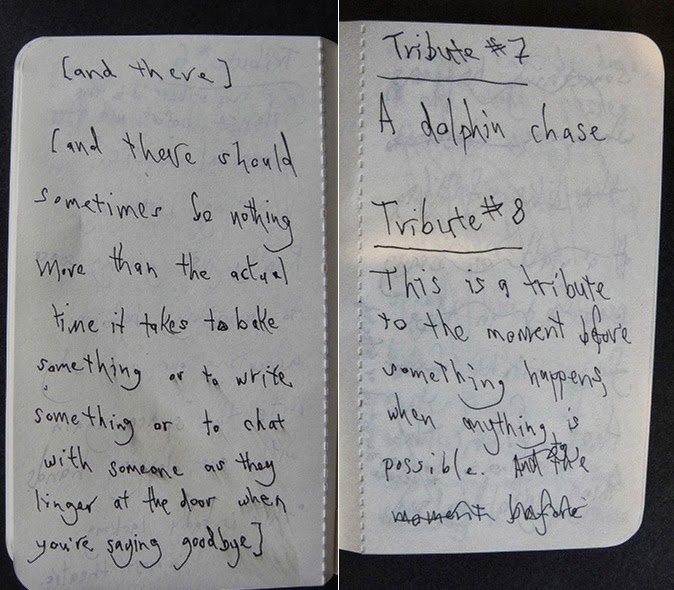 [and there]
[and there should
sometimes be nothing
more than the actual
time it takes to bake
something or to write
something or to chat
with someone as they
linger at the door when
you're saying goodbye]
Tribute #7
A dolphin chase
Tribute #8
This is a tribute
to the moment before
something happens,
when anything is
possible. And to the
moment before